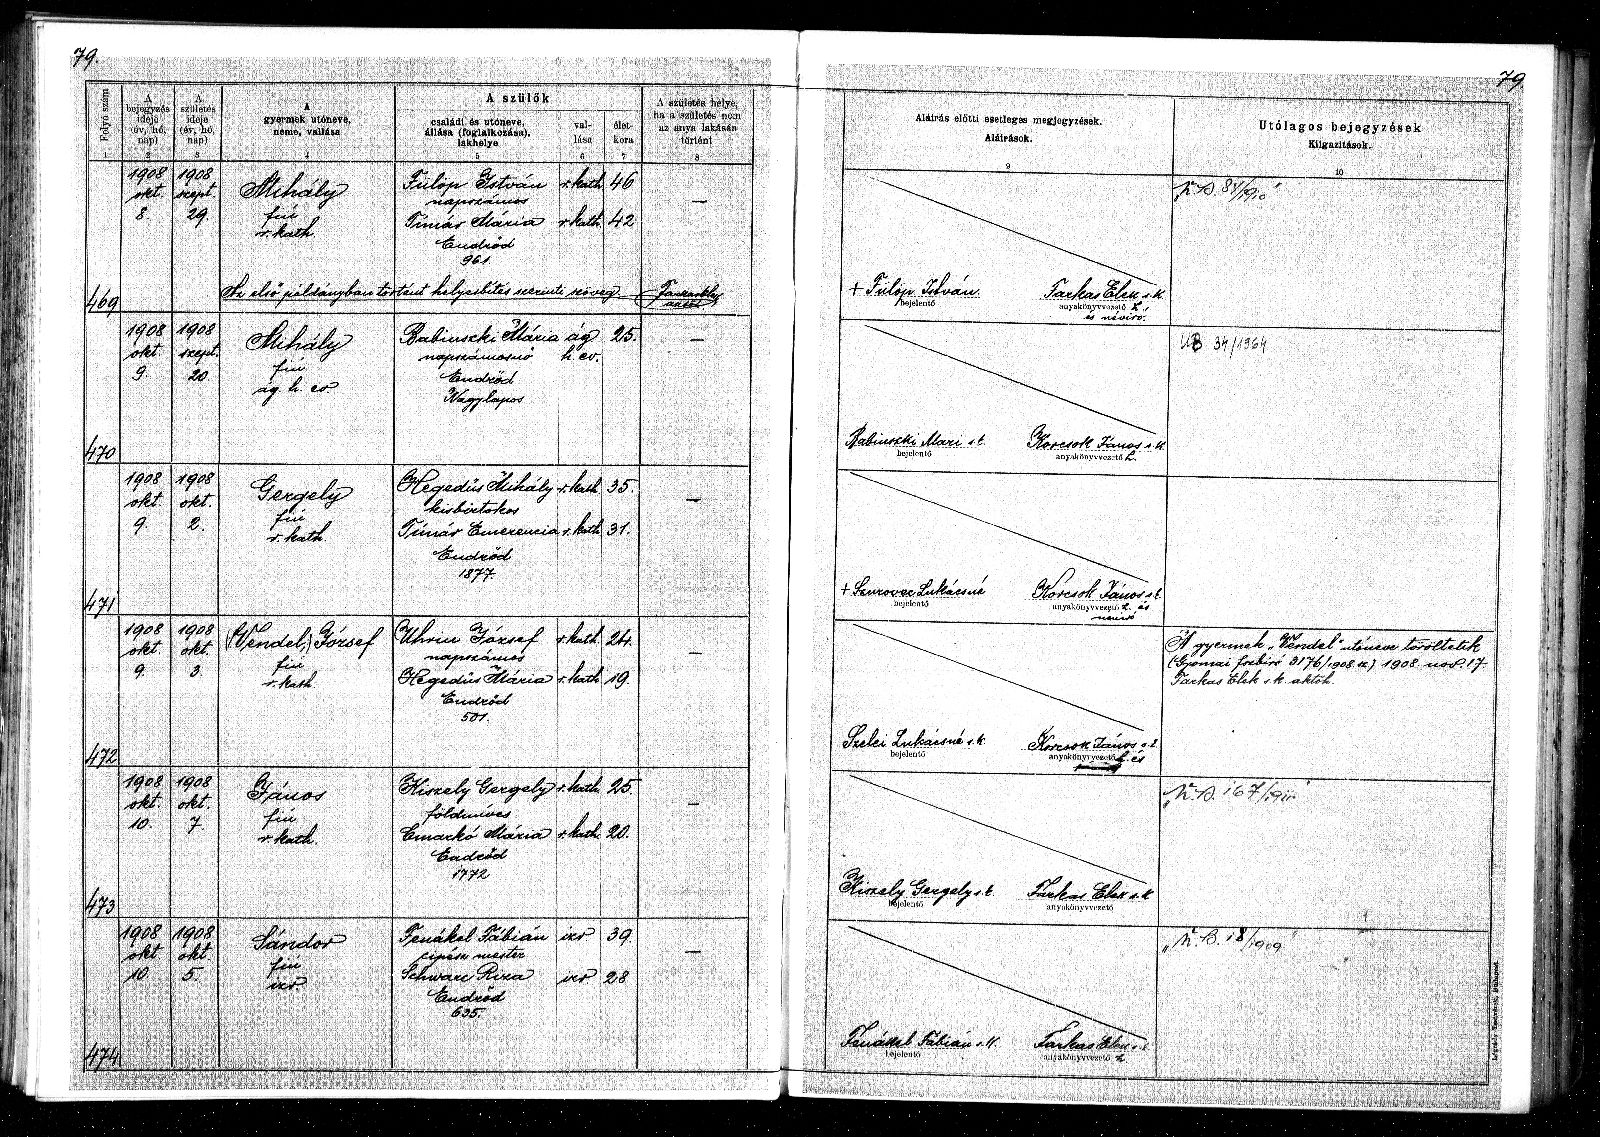 79.
79
Folyó szám
A bejegyzés ideje (év, hó, nap)
A születés ideje (év, hó, nap)
A gyermek utóneve, neme, vallása
A szülők
családi és utóneve, állása (foglalkozása), lakhelye
vallása
életkora
A születés helye, ha a születés nem az anya lakásán történt
Aláírás előtti esetleges megjegyzések.
Aláírások.
Utólagos bejegyzések
Kiigazítások.
1 2 3 4 5 6 7 8 9 10
469
1908 okt. 8.
1908 szept. 29.
Mihály
fiú
r. kath.
Fülöp István r. kath. 46
napszámos
Tímár Mária r. kath. 42
Endrőd
961.
—
Az első példányban történt helyesbítés szerinti szöveg
Farkas Elek
+ Fülöp István.
bejelentő
Farkas Elek s.k.
anyakönyvvezető h.
és névíró.
470
1908 okt. 9.
1908 szept. 20.
Mihály
fiú
ág. h. ev.
Babinszki Mária ág. h. ev. 25.
napszámosnő
Endrőd
Nagylapos
—
Babinszki Mari s.k.
bejelentő
Korcsok János s.k.
anyakönyvvezető h.
34/1964
471
1908 okt. 9.
1908 okt. 2.
Gergely
fiú
r. kath.
Hegedűs Mihály r. kath. 35.
kisbirtokos
Tímár Emerencia r. kath. 31.
Endrőd
1877.
—
+ Szurovec Lukácsné
bejelentő
Korcsok János s.k.
anyakönyvvezető h. és
névíró
472
1908 okt. 9.
1908 okt. 3.
(Vendel,) József
fiú
r. kath.
Uhrin József r. kath. 24.
napszámos
Hegedűs Mária r. kath. 19.
Endrőd
501.
—
Szelei Lukácsné s.k.
bejelentő
Korcsok János s.k.
anyakönyvvezető h. és
A gyermek „Vendel" utóneve töröltetik
(Gyomai főbíró 3176/1908 sz.) 1908. nov. 17.
Farkas Elek s.k. aktvh.
473
1908 okt. 10.
1908 okt. 7.
János
fiú
r. kath.
Kiszely Gergely r. kath. 25.
földmíves
Cmarkó Mária r. kath. 20.
Endrőd
1772
—
Kiszely Gergely s.k.
bejelentő
Farkas Elek s.k.
anyakönyvvezető
474
1908 okt. 10.
1908 okt. 5.
Sándor
fiú
izr.
Tenákel Fábián izr. 39.
cipész mester
Schwarc Roza izr. 28
Endrőd
635.
—
Tenákel Fábián s.k.
bejelentő
Farkas Elek s.k.
anyakönyvvezető h.
18/1909